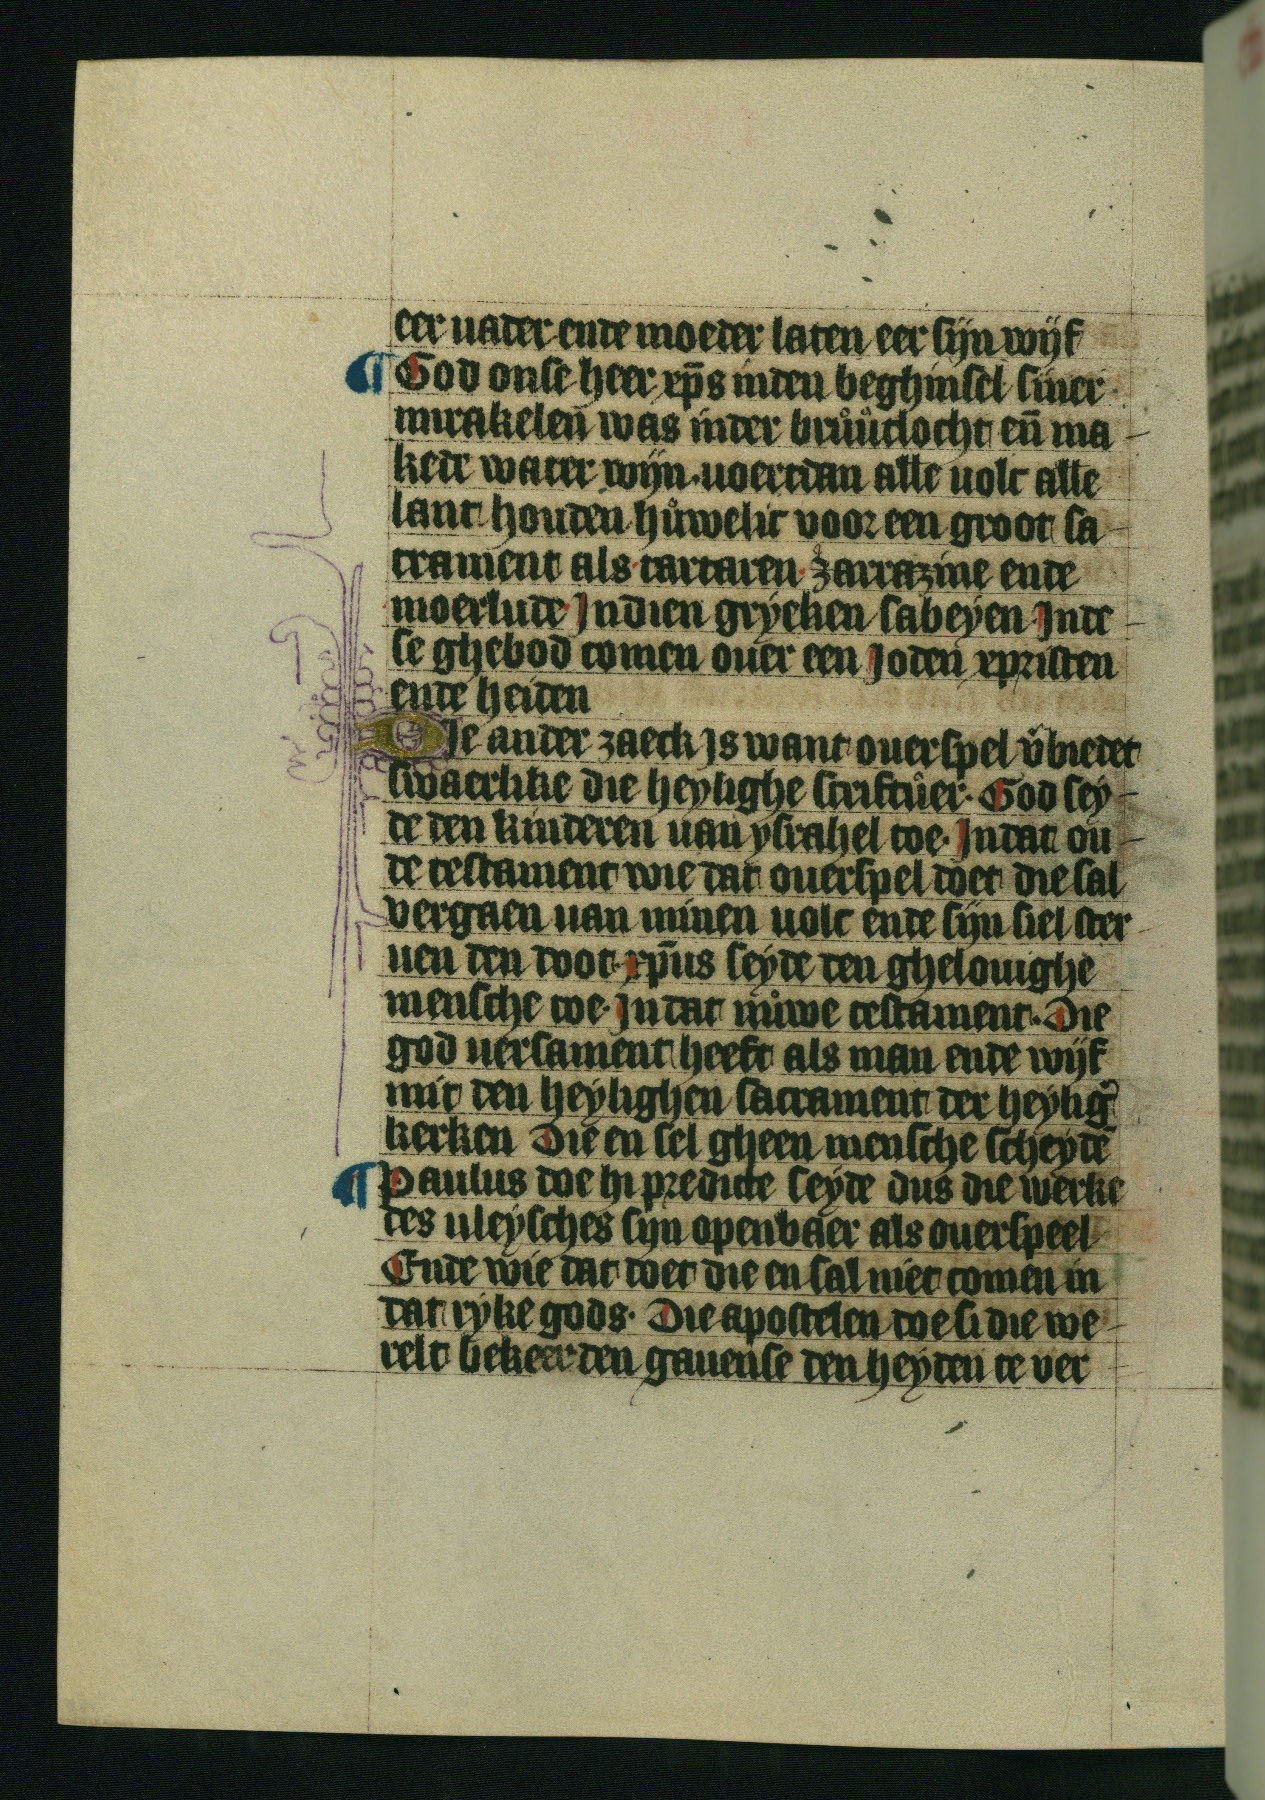 eer uader ende moeder laten eer sijn wijf
¶ God onse heer xp̄s inden beghinsel siner
mirakelen was inder bruůtlocht en̄ ma
kede water wijn. uoertdan alle uolc alle
lant houden hůwelic voor een groot sa
crament als tartaren. zarrazine ende
moerlude. Indien gryeken sabeyen Inde
se ghebod comen ouer een Joden xpristen
ende heiden
Die ander zaeck is want ouerspel v̄biedet
swaerlike die heylighe scriftůer. God sey
de den kinderen uan ysrahel toe. In dat ou
de testament wie dat ouerspel doet die sal
vergaen uan minen uolc ende sijn siel ster
uen den doot. xp̄us seyde den ghelouighe
mensche toe. In dat nůwe testament. Die
god uersament heeft als man ende wijf
mit den heylighen sacrament der heylig̉
kerken Die en sel gheen mensche scheyde
¶ Paulus doe hi predicte seyde dus die werke
des uleysches sijn openbaer als ouerspeel
Ende wie dat doet die en sal niet comen in
dat ryke gods. Die apostelen doe si die we
relt bekeerden gauense den heyden te ver